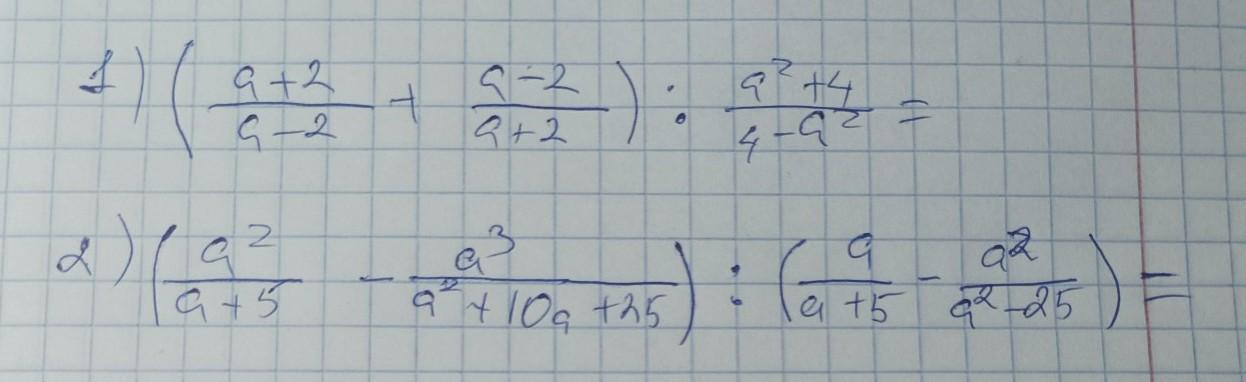 1) ( \frac{a+2}{a-2} + \frac{a-2}{a+2} ) : \frac{a²+4}{4-a²} =
2) ( \frac{a²}{a+5} - \frac{a³}{a²+10a+25} ) : ( \frac{a}{a+5} - \frac{a²}{a²-25} ) =